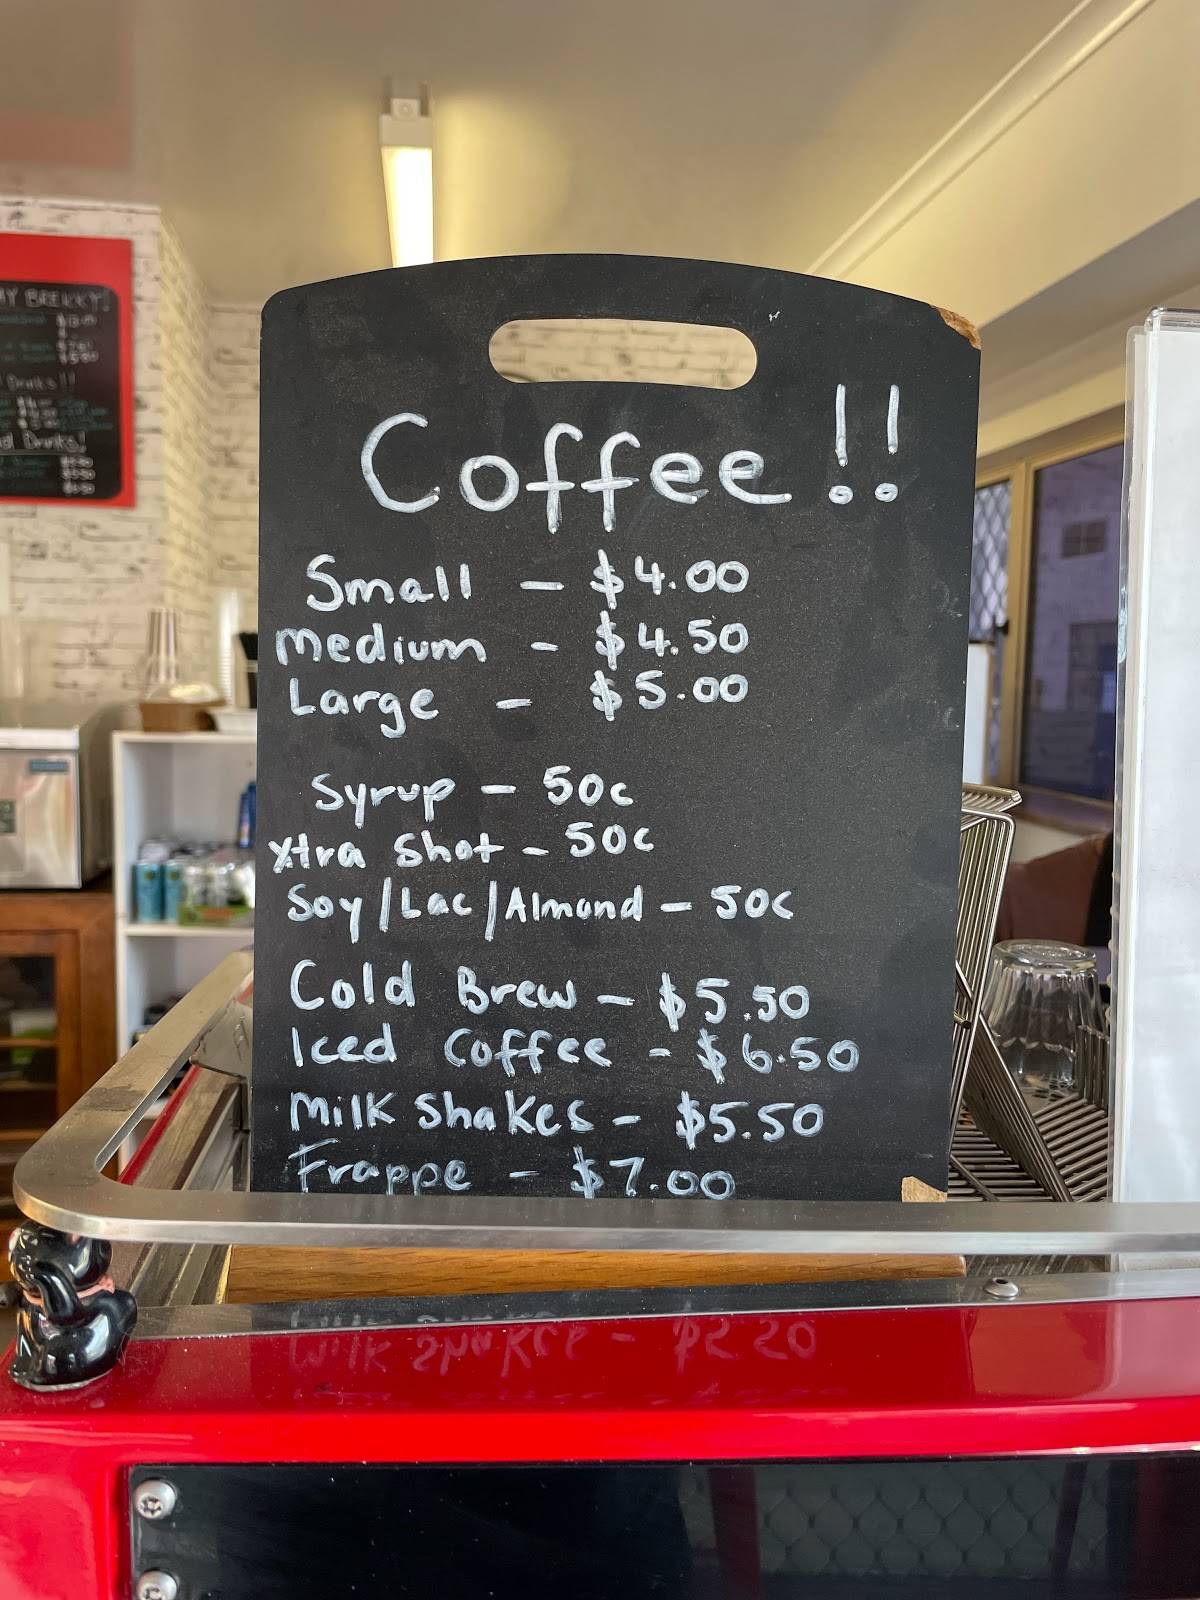 Coffee!!
Small - $4.00
Medium - $4.50
Large - $5.00
Syrup - 50c
Xtra Shot - 50c
Soy/Lac/Almond - 50c
Cold Brew - $5.50
Iced Coffee - $6.50
Milk Shakes - $5.50
Frappe - $7.00
Y BREKKY!
Drinks!!
Drinks!